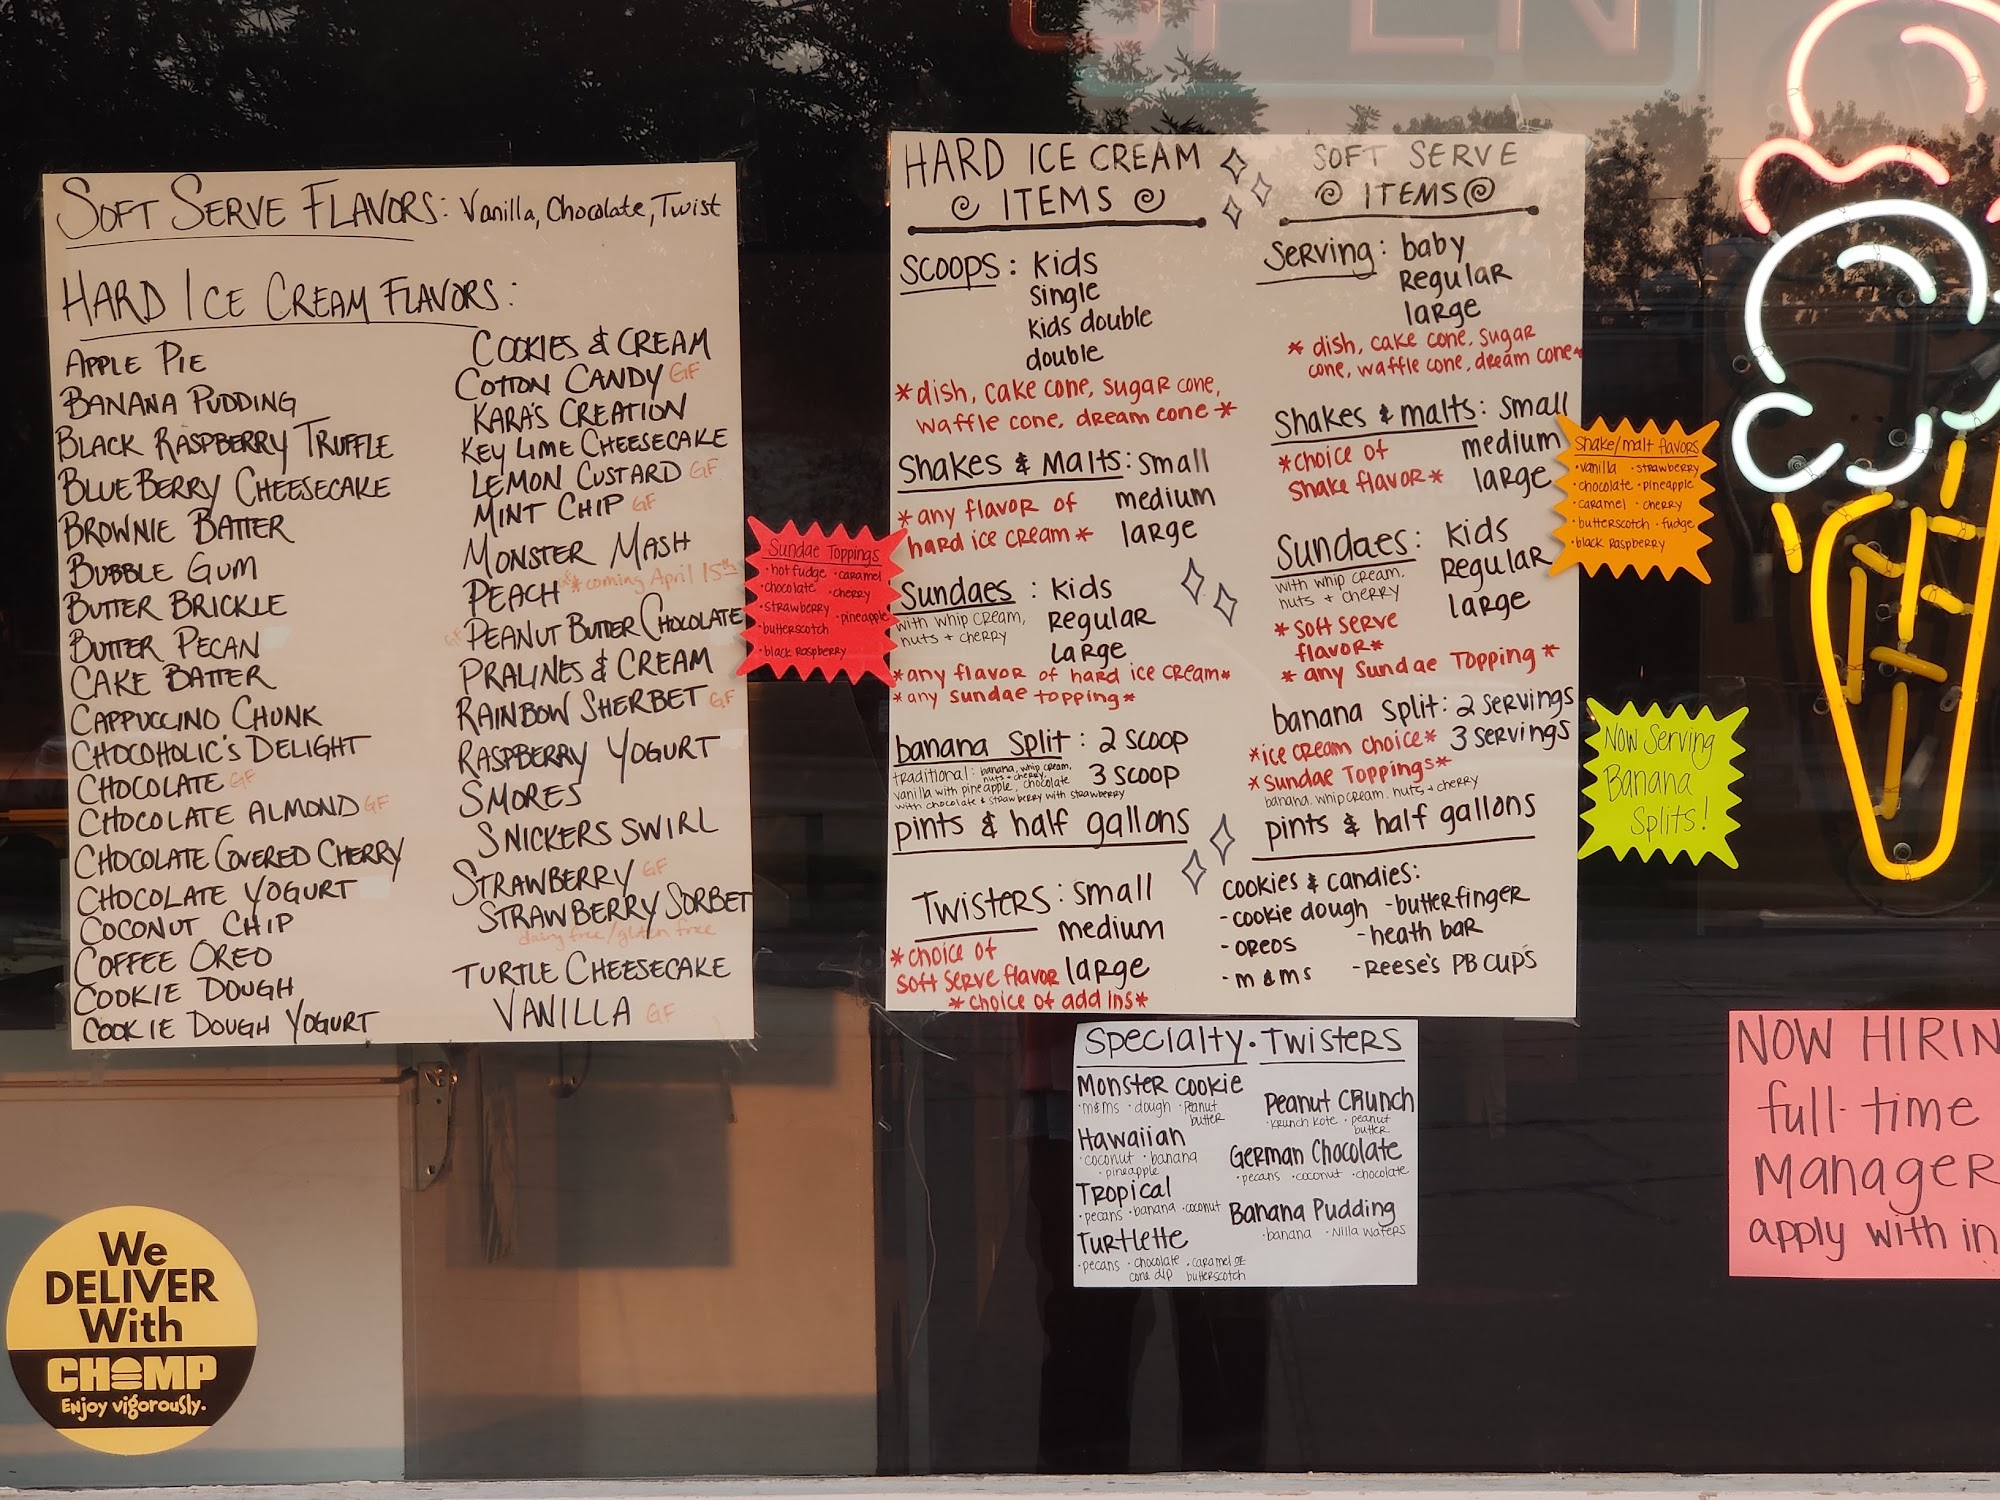 OPEN
SOFT SERVE FLAVORS: Vanilla, Chocolate, Twist
HARD ICE CREAM FLAVORS:
APPLE PIE
BANANA PUDDING
BLACK RASPBERRY TRUFFLE
BLUEBERRY CHEESECAKE
BROWNIE BATTER
BUBBLE GUM
BUTTER BRICKLE
BUTTER PECAN
CAKE BATTER
CAPPUCCINO CHUNK
CHOCOHOLIC'S DELIGHT
CHOCOLATE GF
CHOCOLATE ALMOND GF
CHOCOLATE COVERED CHERRY
CHOCOLATE YOGURT
COCONUT CHIP
COFFEE OREO
COOKIE DOUGH
COOKIE DOUGH YOGURT
COOKIES & CREAM
COTTON CANDY GF
KARA'S CREATION
KEY LIME CHEESECAKE
LEMON CUSTARD GF
MINT CHIP GF
MONSTER MASH
PEACH GF *coming April 15th
GF PEANUT BUTTER CHOCOLATE
PRALINES & CREAM
RAINBOW SHERBET GF
RASPBERRY YOGURT
SMORES
SNICKERS SWIRL
STRAWBERRY GF
STRAWBERRY SORBET
dairy free/gluten free
TURTLE CHEESECAKE
VANILLA GF
Sundae Toppings
• hot fudge • caramel
• chocolate • cherry
• strawberry • pineapple
• butterscotch
• black raspberry
HARD ICE CREAM
ITEMS
SCOOPS: Kids
Single
Kids double
double
*dish, cake cone, sugar cone,
waffle cone, dream cone*
Shakes & Malts: Small
medium
large
*any flavor of
hard ice cream*
Sundaes: Kids
Regular
Large
with whip cream,
nuts + cherry
*any flavor of hard ice cream*
*any sundae topping*
banana split: 2 scoop
3 scoop
traditional: banana, whip cream,
nuts + cherry,
vanilla with pineapple, chocolate
with chocolate & strawberry with strawberry
pints & half gallons
Twisters: small
medium
large
*choice of
soft serve flavor
*choice of add ins*
SOFT SERVE
ITEMS
Serving: baby
Regular
large
* dish, cake cone, sugar
cone, waffle cone, dream cone*
Shakes & malts: small
medium
large
*choice of
shake flavor*
Sundaes: Kids
Regular
large
with whip cream,
nuts + cherry
* soft serve
flavor*
* any Sundae Topping*
banana split: 2 servings
3 servings
*ice cream choice*
*Sundae Toppings*
banana, whip cream, nuts + cherry
pints & half gallons
cookies & candies:
- cookie dough - butterfinger
- oreos - heath bar
- m & ms - Reese's PB CUPS
Shake/malt flavors
• vanilla • strawberry
• chocolate • pineapple
• caramel • cherry
• butterscotch • fudge
• black raspberry
Now Serving
Banana
Splits!
Specialty • Twisters
Monster cookie
• m&ms • dough • Peanut
butter
Hawaiian
• coconut • banana
• pineapple
Tropical
• pecans • banana • coconut
Turtlette
• pecans • chocolate • caramel or
cone dip butterscotch
Peanut Crunch
• krunch kote • peanut
butter
German Chocolate
• pecans • coconut • chocolate
Banana Pudding
• banana • Nilla wafers
NOW HIRIN
full-time
Manager
apply with in
We
DELIVER
With
CHOMP
Enjoy vigorously.